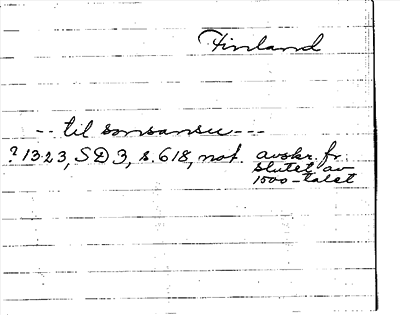 Finland
-- til sonsansu ---
? 1323, SD 3, s. 618, not. avskr. fr.
slutet av
1500-talet